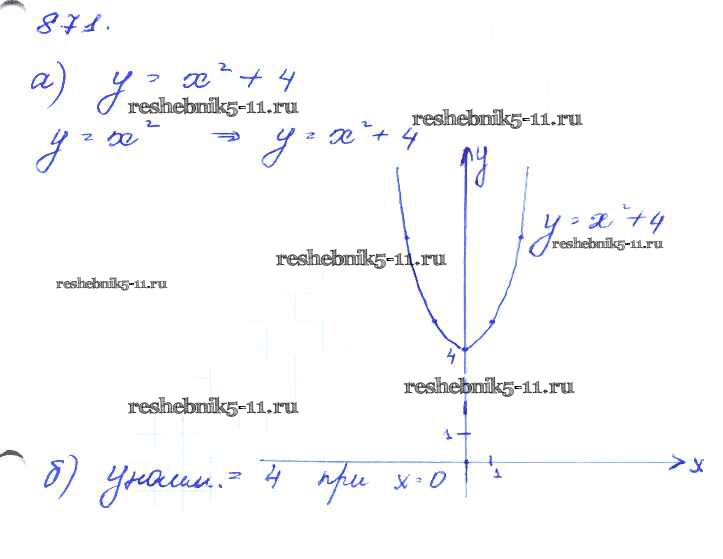 871.
а) y = x² + 4
reshebnik5-11.ru
reshebnik5-11.ru
y = x² ⇒ y = x² + 4
y
y = x² + 4
reshebnik5-11.ru
reshebnik5-11.ru
reshebnik5-11.ru
4
reshebnik5-11.ru
reshebnik5-11.ru
1
x
1
б) yнаим. = 4 при x = 0